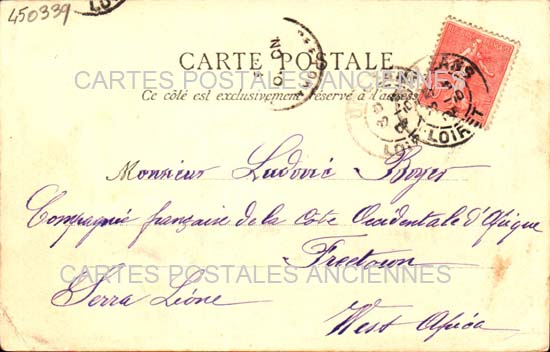 450339
CARTE POSTALE
CARTES POSTALES ANCIENNES
Ce côté est exclusivement réservé à l'adresse
LOIRET
Monsieur Ludovic Boyer
Compagnie française de la Côte Occidentale d'Afrique
Freetown
CARTES POSTALES ANCIENNES
Serra Léone
West Africa